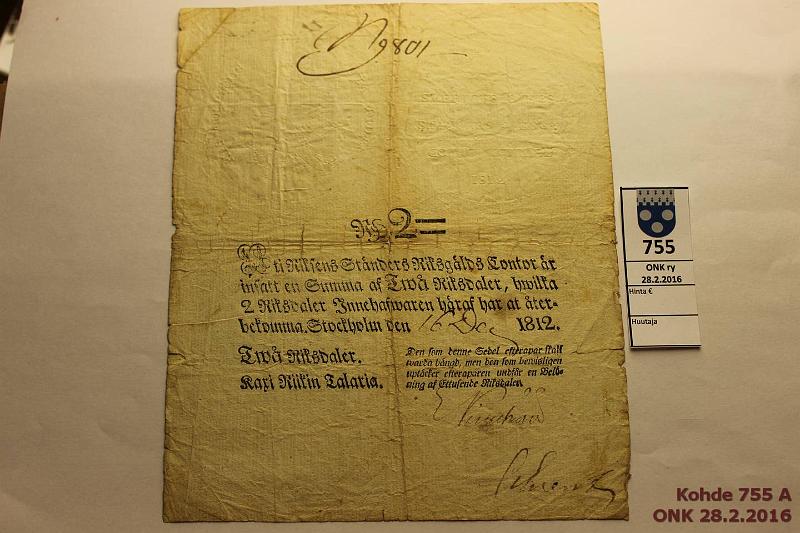 N 9801
RD 2=
Uti Riksens Ständers Riksgälds Contor är
insatt en Summa af Twå Riksdaler, hwilka
2 Riksdaler Innehafwaren häraf har at åter-
bekomma. Stockholm den 16 Dec 1812.
Twå Riksdaler.
Kaxi Riikin Talaria.
Den som denne Sedel efterapar skall
warda hängd, men den som bewisligen
uptäcker efteraparen undfår en Belö-
ning af Ettusende Riksdaler.
755
ONK ry
28.2.2016
Hinta €
Huutaja
Kohde 755 A
ONK 28.2.2016